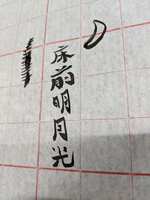 床前明月光